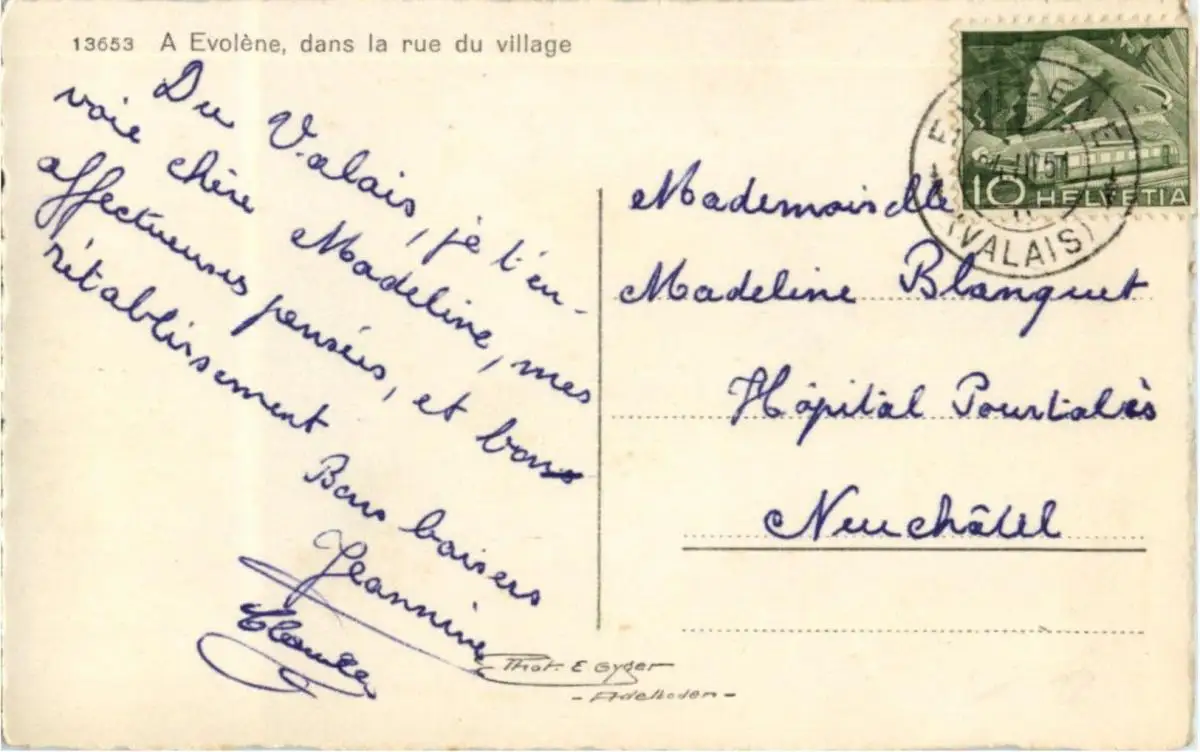 13653 A Evolène, dans la rue du village
Du Valais, je t'en-
voie chère Madeline, mes
affectueuses pensées, et bons
rétablissement
Bons baisers
Jeannine
Claude
Phot. E. Gyger
- Adelboden -
10 HELVETIA
(VALAIS)
Mademoiselle
Madeline Blanquet
Hôpital Pourtalès
Neuchâtel